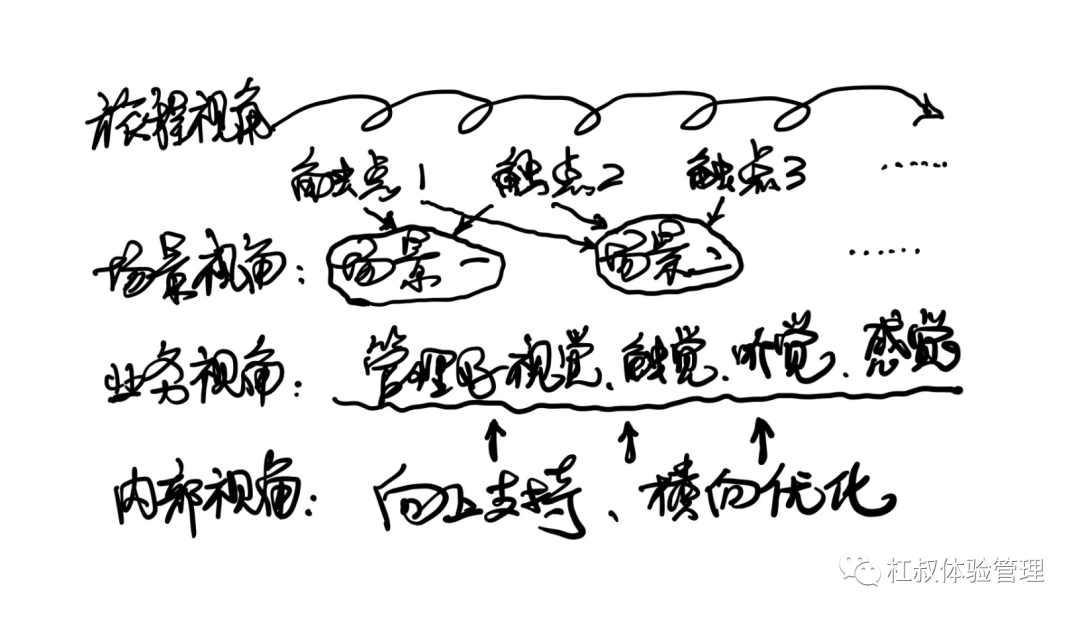 旅程视角
触点1 触点2 触点3 ……
场景视角: 场景一 场景二 ……
业务视角: 管理好视觉、触觉、听觉、感觉
内部视角: 向上支持、横向优化
杠叔体验管理